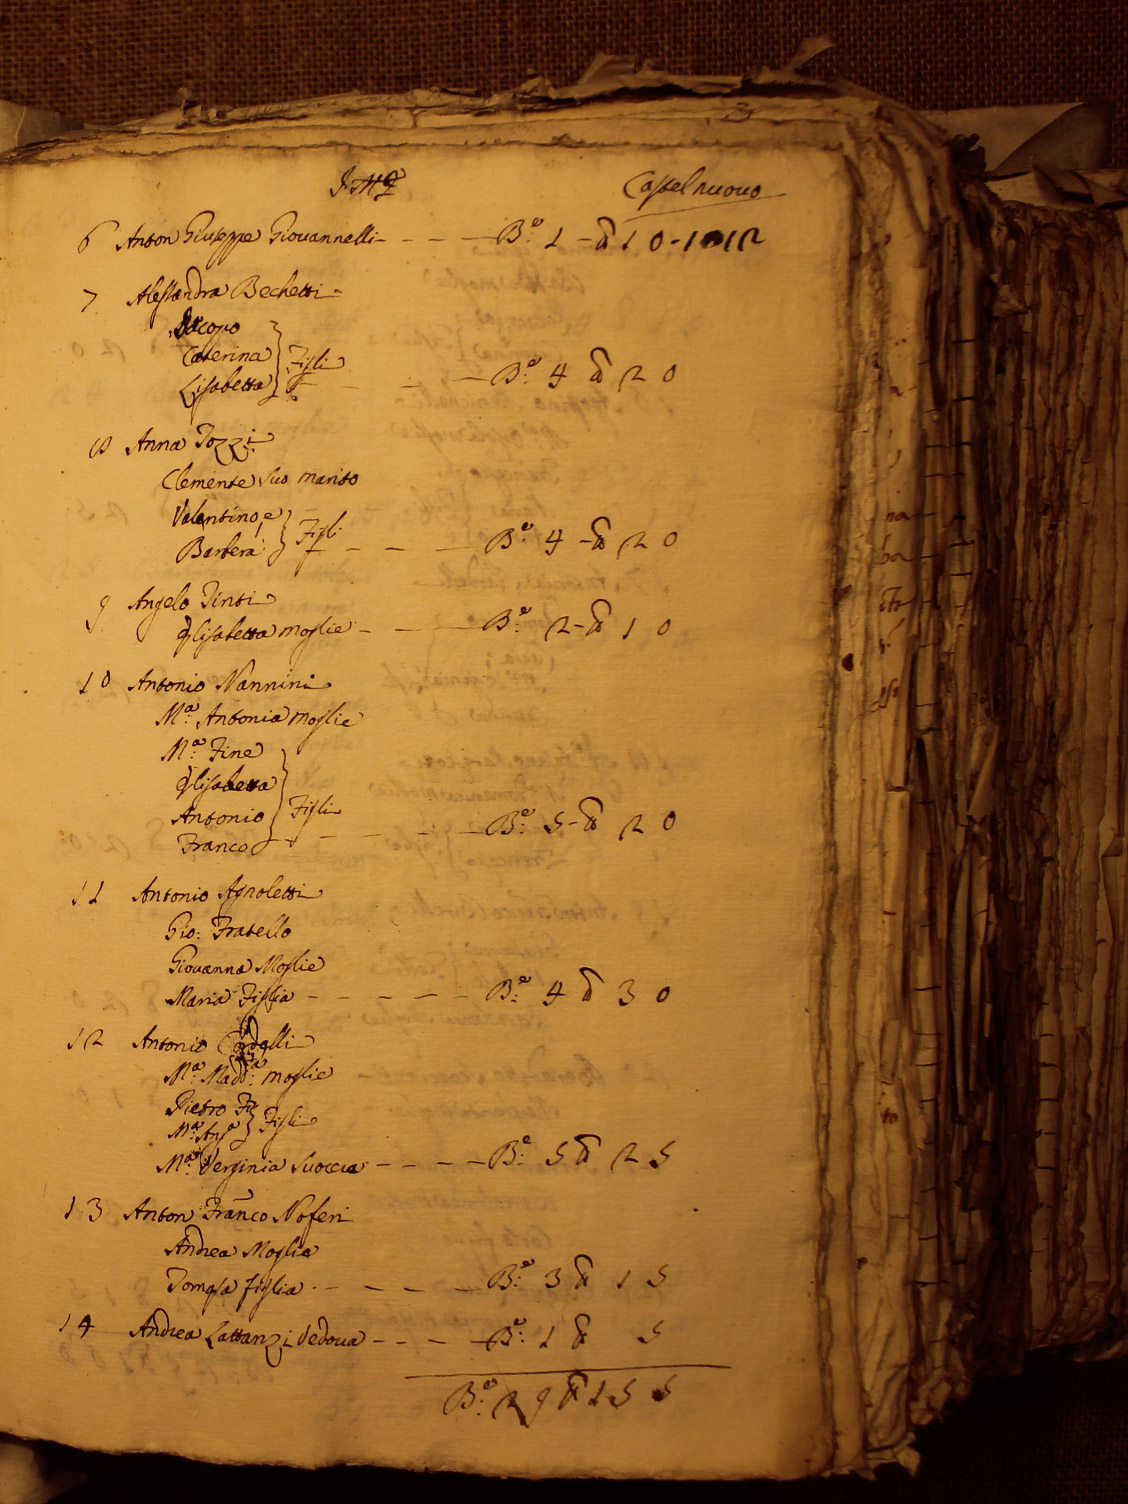 3
Castelnuovo
6 Anton Giuseppe Giovannelli - - - Be: 1 - 10 -
7 Alessandra Bechetti -
Jacopo
Caterina
Lisabetta } Figli - - - Be: 4 20
8 Anna Pozzi
Clemente suo marito
Valentino, e
Barbera } Figli - - - Be: 4 - 20
9 Angelo Pinti
Elisabetta moglie - - - Be: 2 - 10
10 Antonio Nannini
Ma: Antonia moglie
Ma: Fine
Elisabetta
Antonio
Franco } Figli - - - - Be: 5 - 20
11 Antonio Agnoletti
Gio: Fratello
Giovanna Moglie
Maria Figlia - - - - - Be: 4 30
12 Antonio
Ma: Madda: moglie
Pietro
Ma: Anga } Figli
Ma: Verginia Suocera - - - - Be: 5 25
13 Anton Franco Noferi
Andrea Moglie
Domca figlia - - - - Be: 3 15
14 Andrea Lattanzi Vedova - - - - Be: 1 5
Be: 29 155